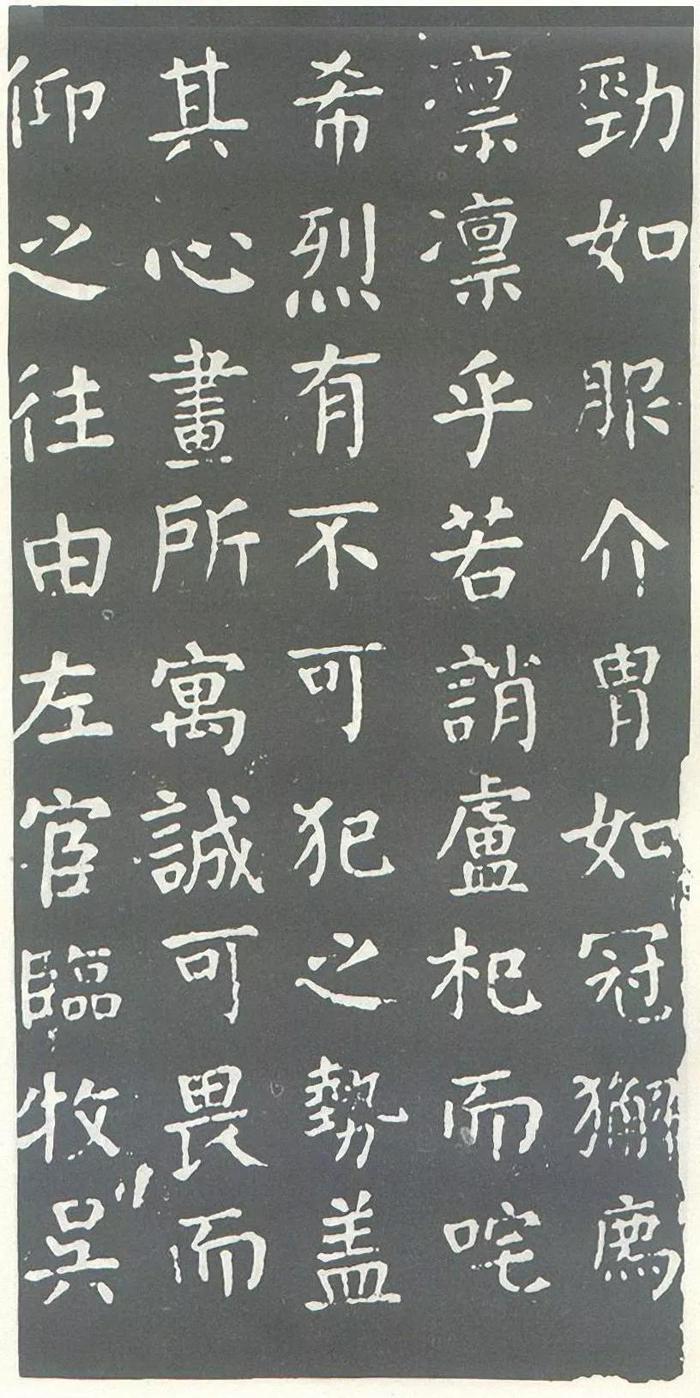 勁如服介胄如冠獬廌
凛凛乎若誚盧杞而咤
希烈有不可犯之勢盖
其心畫所寓誠可畏而
仰之往由左宦臨牧吳